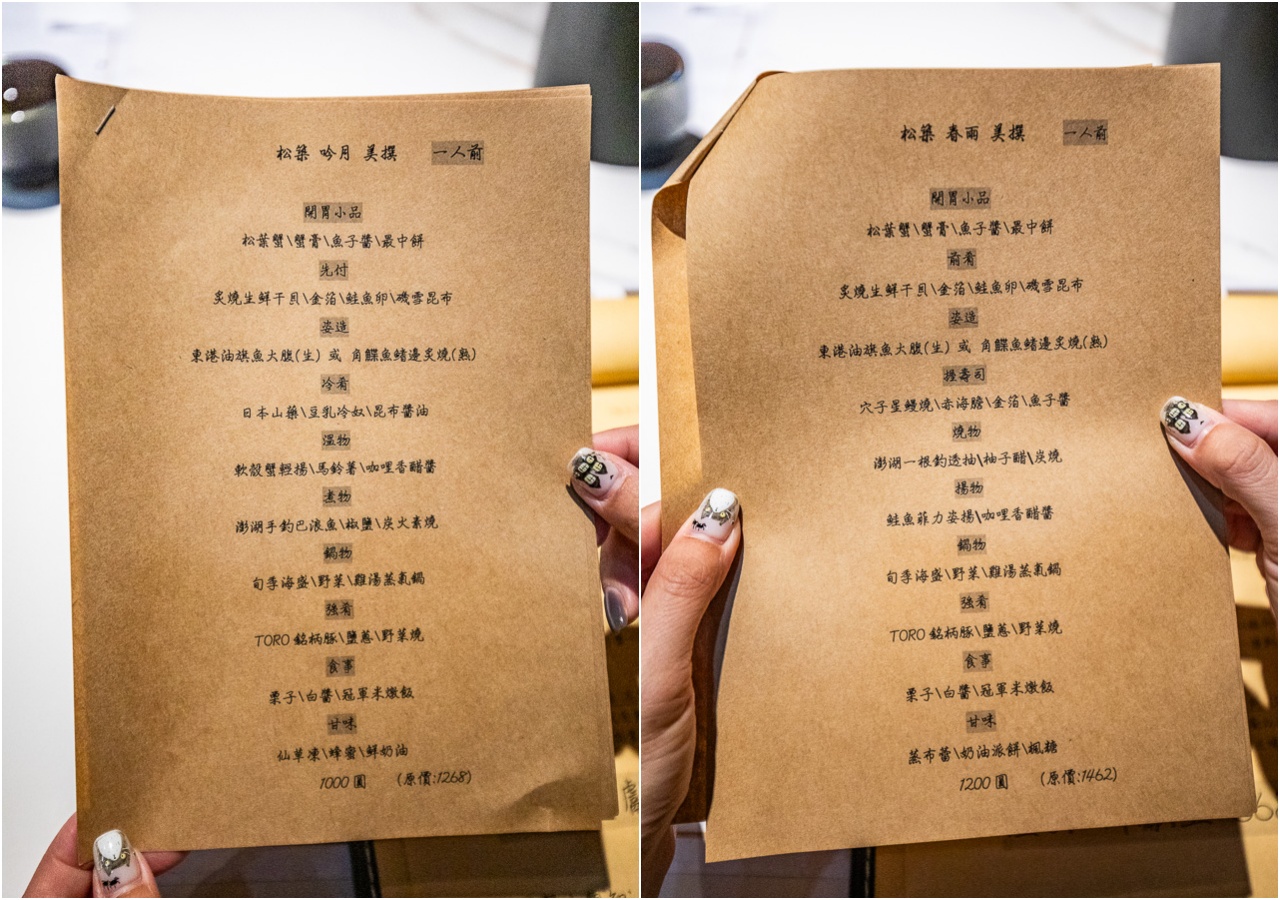 松築 吟月 美撰 一人前
開胃小品
松葉蟹\蟹膏\魚子醬\最中餅
先付
炙燒生鮮干貝\金箔\鮭魚卵\磯雪昆布
姿造
東港油旗魚大腹(生) 或 角鰈魚鰭邊炙燒(熟)
冷肴
日本山藥\豆乳冷奴\昆布醬油
溫物
軟殼蟹輕揚\馬鈴薯\咖哩香醋醬
煮物
澎湖手釣巴浪魚\椒鹽\炭火素燒
鍋物
旬季海盛\野菜\雞湯蒸氣鍋
強肴
TORO 銘柄豚\鹽蔥\野菜燒
食事
栗子\白醬\冠軍米燉飯
甘味
仙草凍\蜂蜜\鮮奶油
1000 圓 (原價:1268)
松築 春雨 美撰 一人前
開胃小品
松葉蟹\蟹膏\魚子醬\最中餅
前肴
炙燒生鮮干貝\金箔\鮭魚卵\磯雪昆布
姿造
東港油旗魚大腹(生) 或 角鰈魚鰭邊炙燒(熟)
握壽司
穴子星鰻燒\赤海膽\金箔\魚子醬
燒物
澎湖一根釣透抽\柚子醋\炭燒
揚物
鮭魚菲力姿揚\咖哩香醋醬
鍋物
旬季海盛\野菜\雞湯蒸氣鍋
強肴
TORO 銘柄豚\鹽蔥\野菜燒
食事
栗子\白醬\冠軍米燉飯
甘味
蒸布蕾\奶油派餅\楓糖
1200 圓 (原價:1462)